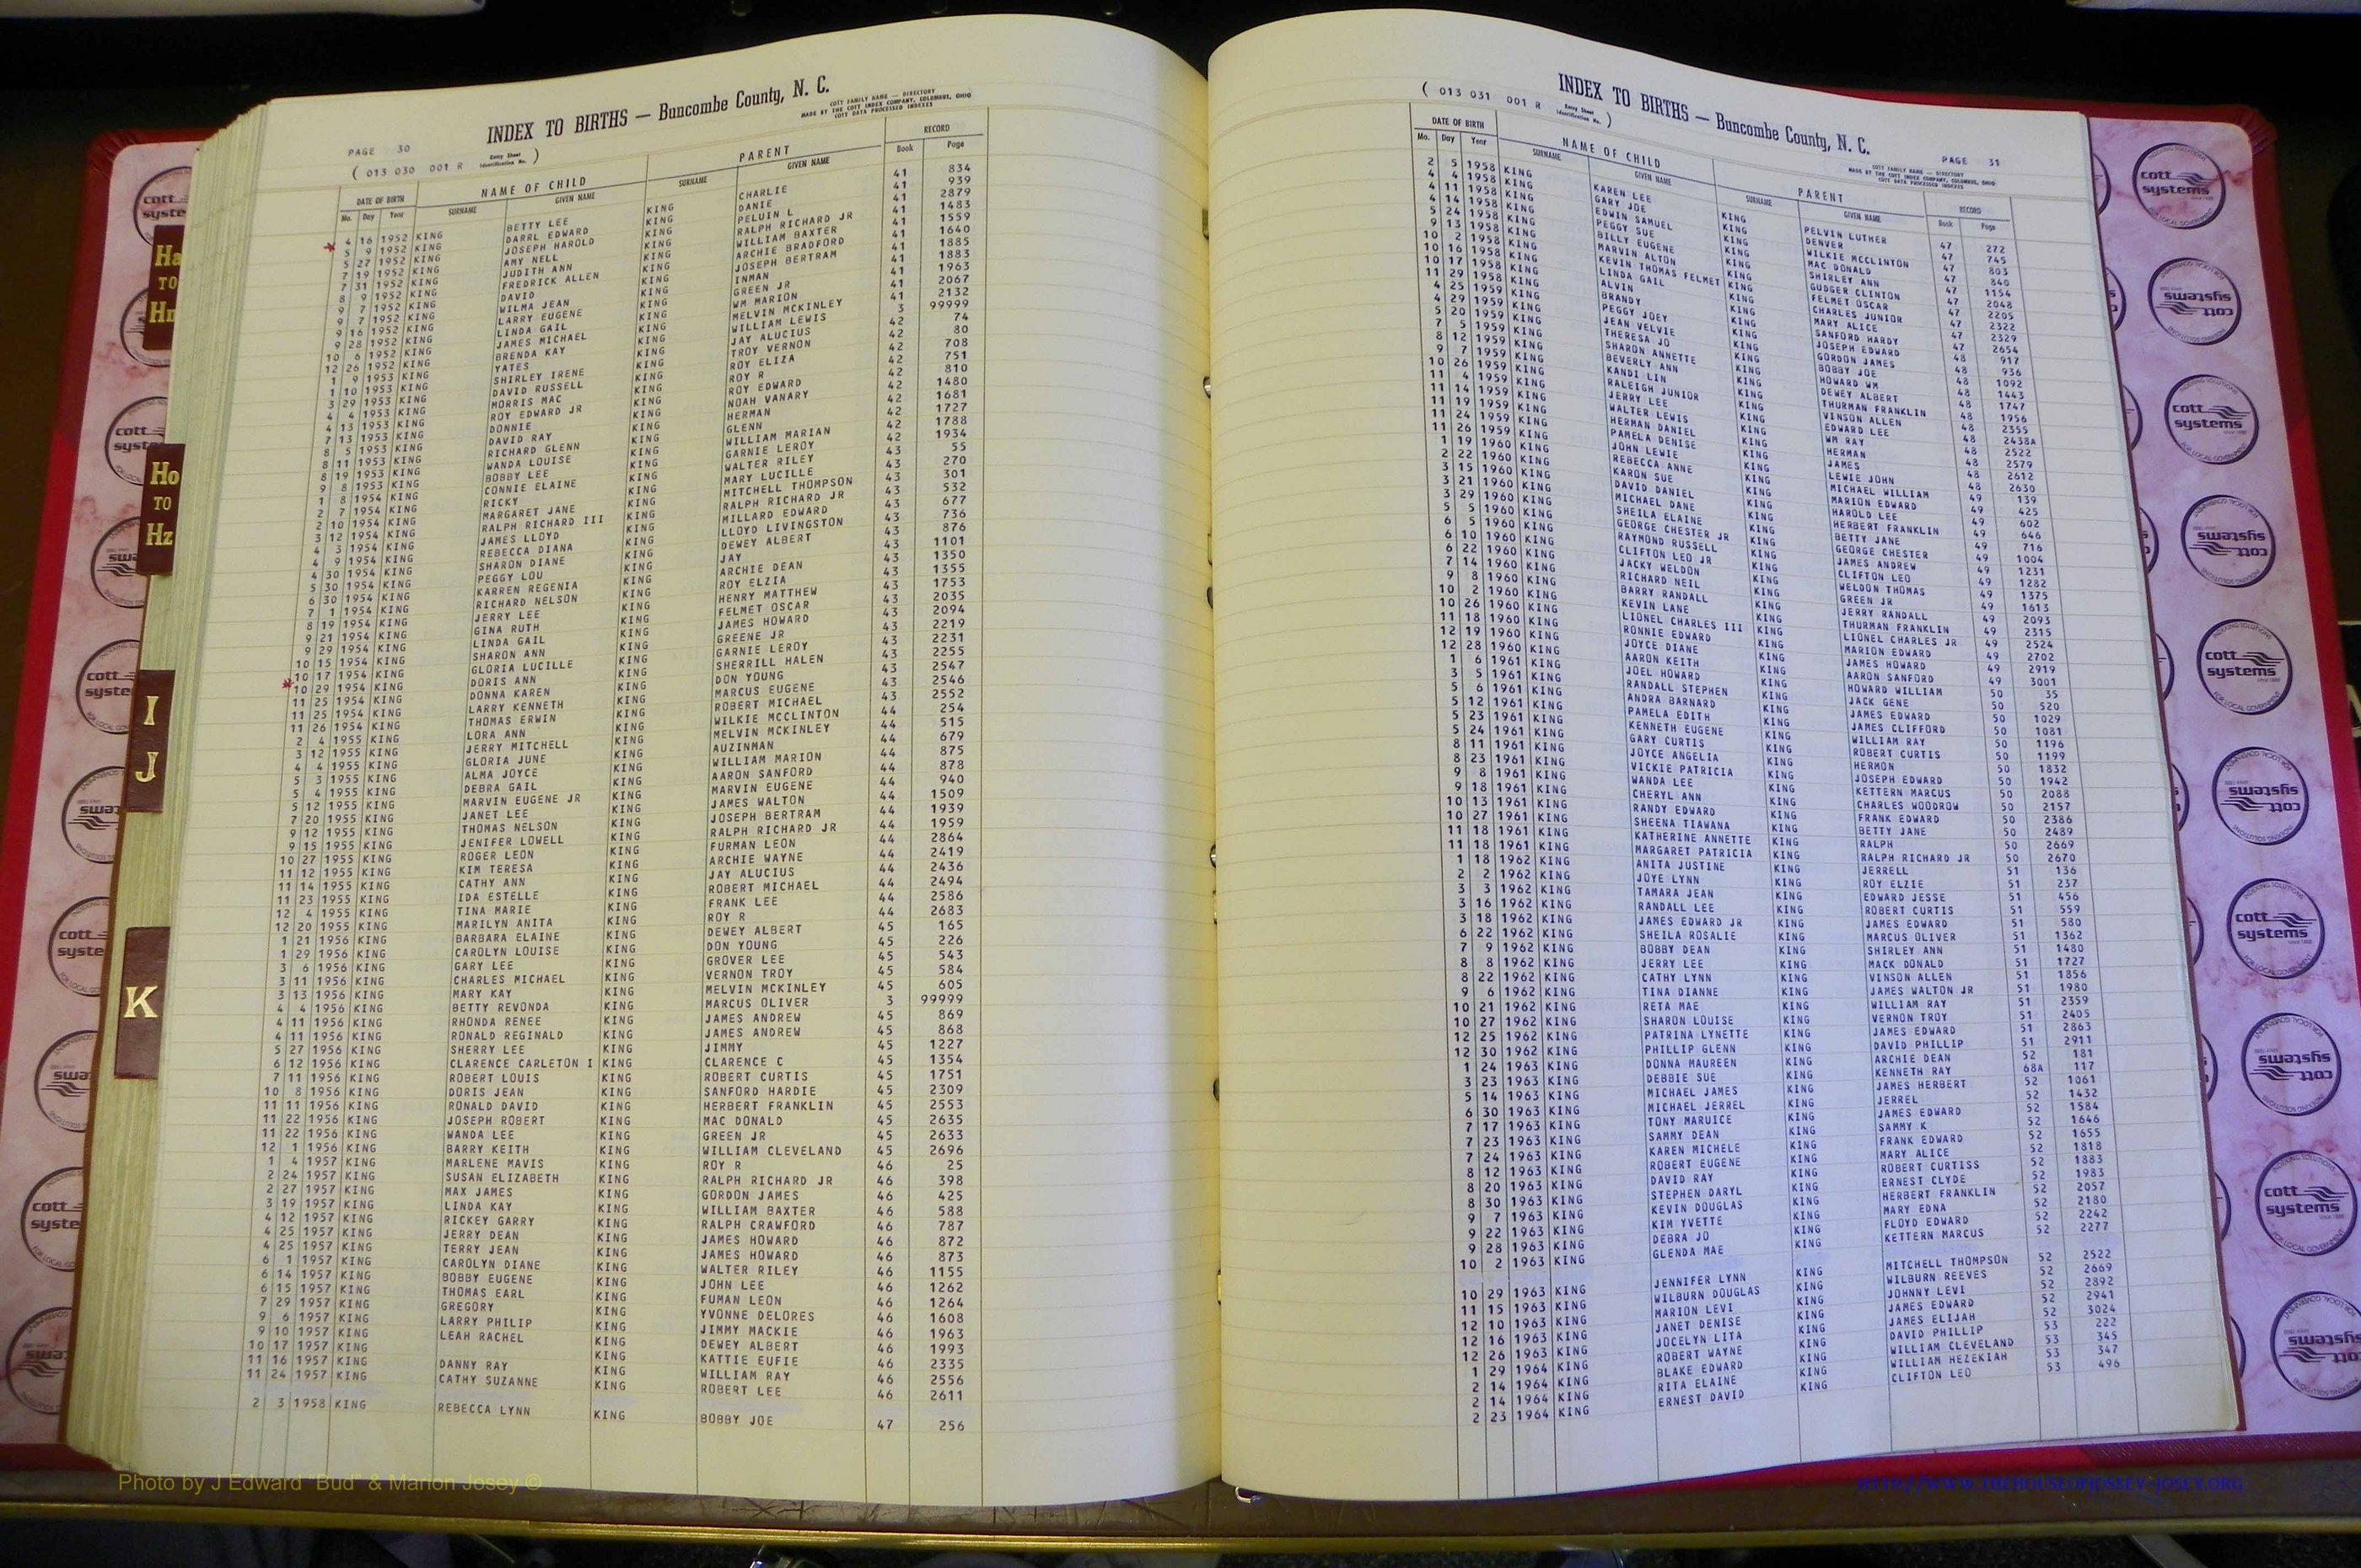 INDEX TO BIRTHS — Buncombe County, N. C.
COTT FAMILY NAME — DIRECTORY
MADE BY THE COTT INDEX COMPANY, COLUMBUS, OHIO
COTT DATA PROCESSED INDEXES
PAGE 30
( 013 030 001 R Entry Sheet Identification No. )
DATE OF BIRTH NAME OF CHILD PARENT RECORD
Mo. Day Year SURNAME GIVEN NAME SURNAME GIVEN NAME Book Page
4 16 1952 KING BETTY LEE KING CHARLIE 41 834
5 9 1952 KING DARRL EDWARD KING DANIE 41 939
5 27 1952 KING JOSEPH HAROLD KING PELUIN L 41 2879
7 19 1952 KING AMY NELL KING RALPH RICHARD JR 41 1483
7 31 1952 KING JUDITH ANN KING WILLIAM BAXTER 41 1559
8 9 1952 KING FREDRICK ALLEN KING ARCHIE BRADFORD 41 1640
9 7 1952 KING DAVID KING JOSEPH BERTRAM 41 1885
9 7 1952 KING WILMA JEAN KING INMAN 41 1883
9 16 1952 KING LARRY EUGENE KING GREEN JR 41 1963
9 28 1952 KING LINDA GAIL KING WM MARION 41 2067
10 6 1952 KING JAMES MICHAEL KING MELVIN MCKINLEY 41 2132
12 26 1952 KING BRENDA KAY KING WILLIAM LEWIS 3 99999
1 9 1953 KING YATES KING JAY ALUCIUS 42 74
1 10 1953 KING SHIRLEY IRENE KING TROY VERNON 42 80
3 29 1953 KING DAVID RUSSELL KING ROY ELIZA 42 708
4 4 1953 KING MORRIS MAC KING ROY R 42 751
4 13 1953 KING ROY EDWARD JR KING ROY EDWARD 42 810
7 13 1953 KING DONNIE KING NOAH VANARY 42 1480
8 5 1953 KING DAVID RAY KING HERMAN 42 1681
8 11 1953 KING RICHARD GLENN KING GLENN 42 1727
8 19 1953 KING WANDA LOUISE KING WILLIAM MARIAN 42 1788
9 8 1953 KING BOBBY LEE KING GARNIE LEROY 42 1934
1 8 1954 KING CONNIE ELAINE KING WALTER RILEY 43 55
2 7 1954 KING RICKY KING MARY LUCILLE 43 270
2 10 1954 KING MARGARET JANE KING MITCHELL THOMPSON 43 301
3 12 1954 KING RALPH RICHARD III KING RALPH RICHARD JR 43 532
4 3 1954 KING JAMES LLOYD KING MILLARD EDWARD 43 677
4 9 1954 KING REBECCA DIANA KING LLOYD LIVINGSTON 43 736
4 30 1954 KING SHARON DIANE KING DEWEY ALBERT 43 876
5 30 1954 KING PEGGY LOU KING JAY 43 1101
6 30 1954 KING KARREN REGENIA KING ARCHIE DEAN 43 1350
7 1 1954 KING RICHARD NELSON KING ROY ELZIA 43 1355
8 19 1954 KING JERRY LEE KING HENRY MATTHEW 43 1753
9 21 1954 KING GINA RUTH KING FELMET OSCAR 43 2035
9 29 1954 KING LINDA GAIL KING JAMES HOWARD 43 2094
10 15 1954 KING SHARON ANN KING GREENE JR 43 2219
10 17 1954 KING GLORIA LUCILLE KING GARNIE LEROY 43 2231
10 29 1954 KING DORIS ANN KING SHERRILL HALEN 43 2255
11 25 1954 KING DONNA KAREN KING DON YOUNG 43 2547
11 25 1954 KING LARRY KENNETH KING MARCUS EUGENE 43 2546
11 26 1954 KING THOMAS ERWIN KING ROBERT MICHAEL 43 2552
2 4 1955 KING LORA ANN KING WILKIE MCCLINTON 44 254
3 12 1955 KING JERRY MITCHELL KING MELVIN MCKINLEY 44 515
4 4 1955 KING GLORIA JUNE KING AUZINMAN 44 679
5 3 1955 KING ALMA JOYCE KING WILLIAM MARION 44 875
5 4 1955 KING DEBRA GAIL KING AARON SANFORD 44 878
5 12 1955 KING MARVIN EUGENE JR KING MARVIN EUGENE 44 940
7 20 1955 KING JANET LEE KING JAMES WALTON 44 1509
9 12 1955 KING THOMAS NELSON KING JOSEPH BERTRAM 44 1939
9 15 1955 KING JENIFER LOWELL KING RALPH RICHARD JR 44 1959
10 27 1955 KING ROGER LEON KING FURMAN LEON 44 2864
11 12 1955 KING KIM TERESA KING ARCHIE WAYNE 44 2419
11 14 1955 KING CATHY ANN KING JAY ALUCIUS 44 2436
11 23 1955 KING IDA ESTELLE KING ROBERT MICHAEL 44 2494
12 4 1955 KING TINA MARIE KING FRANK LEE 44 2586
12 20 1955 KING MARILYN ANITA KING ROY R 44 2683
1 21 1956 KING BARBARA ELAINE KING DEWEY ALBERT 45 165
1 29 1956 KING CAROLYN LOUISE KING DON YOUNG 45 226
3 6 1956 KING GARY LEE KING GROVER LEE 45 543
3 11 1956 KING CHARLES MICHAEL KING VERNON TROY 45 584
3 13 1956 KING MARY KAY KING MELVIN MCKINLEY 45 605
4 4 1956 KING BETTY REVONDA KING MARCUS OLIVER 3 99999
4 11 1956 KING RHONDA RENEE KING JAMES ANDREW 45 869
4 11 1956 KING RONALD REGINALD KING JAMES ANDREW 45 868
5 27 1956 KING SHERRY LEE KING JIMMY 45 1227
6 12 1956 KING CLARENCE CARLETON I KING CLARENCE C 45 1354
7 11 1956 KING ROBERT LOUIS KING ROBERT CURTIS 45 1751
10 8 1956 KING DORIS JEAN KING SANFORD HARDIE 45 2309
11 11 1956 KING RONALD DAVID KING HERBERT FRANKLIN 45 2553
11 22 1956 KING JOSEPH ROBERT KING MAC DONALD 45 2635
11 22 1956 KING WANDA LEE KING GREEN JR 45 2633
12 1 1956 KING BARRY KEITH KING WILLIAM CLEVELAND 45 2696
1 4 1957 KING MARLENE MAVIS KING ROY R 46 25
2 24 1957 KING SUSAN ELIZABETH KING RALPH RICHARD JR 46 398
2 27 1957 KING MAX JAMES KING GORDON JAMES 46 425
3 19 1957 KING LINDA KAY KING WILLIAM BAXTER 46 588
4 12 1957 KING RICKEY GARRY KING RALPH CRAWFORD 46 787
4 25 1957 KING JERRY DEAN KING JAMES HOWARD 46 872
4 25 1957 KING TERRY JEAN KING JAMES HOWARD 46 873
6 1 1957 KING CAROLYN DIANE KING WALTER RILEY 46 1155
6 14 1957 KING BOBBY EUGENE KING JOHN LEE 46 1262
6 15 1957 KING THOMAS EARL KING FUMAN LEON 46 1264
7 29 1957 KING GREGORY KING YVONNE DELORES 46 1608
9 6 1957 KING LARRY PHILIP KING JIMMY MACKIE 46 1963
9 10 1957 KING LEAH RACHEL KING DEWEY ALBERT 46 1993
10 17 1957 KING KING KATTIE EUFIE 46 2335
11 16 1957 KING DANNY RAY KING WILLIAM RAY 46 2556
11 24 1957 KING CATHY SUZANNE KING ROBERT LEE 46 2611
2 3 1958 KING REBECCA LYNN KING BOBBY JOE 47 256
INDEX TO BIRTHS — Buncombe County, N. C.
( 013 031 001 R Entry Sheet Identification No. )
PAGE 31
COTT FAMILY NAME — DIRECTORY
MADE BY THE COTT INDEX COMPANY, COLUMBUS, OHIO
COTT DATA PROCESSED INDEXES
DATE OF BIRTH NAME OF CHILD PARENT RECORD
Mo. Day Year SURNAME GIVEN NAME SURNAME GIVEN NAME Book Page
2 5 1958 KING KAREN LEE KING PELVIN LUTHER 47 272
4 4 1958 KING GARY JOE KING DENVER 47 745
4 11 1958 KING EDWIN SAMUEL KING WILKIE MCCLINTON 47 803
4 14 1958 KING PEGGY SUE KING MAC DONALD 47 840
5 24 1958 KING BILLY EUGENE KING SHIRLEY ANN 47 1154
9 13 1958 KING MARVIN ALTON KING GUDGER CLINTON 47 2048
10 2 1958 KING KEVIN THOMAS FELMET KING FELMET OSCAR 47 2205
10 16 1958 KING LINDA GAIL KING CHARLES JUNIOR 47 2322
10 17 1958 KING ALVIN KING MARY ALICE 47 2329
11 29 1958 KING BRANDY KING SANFORD HARDY 47 2654
4 25 1959 KING PEGGY JOEY KING JOSEPH EDWARD 48 917
4 29 1959 KING JEAN VELVIE KING GORDON JAMES 48 936
5 20 1959 KING THERESA JO KING BOBBY JOE 48 1092
7 5 1959 KING SHARON ANNETTE KING HOWARD WM 48 1443
8 12 1959 KING BEVERLY ANN KING DEWEY ALBERT 48 1747
9 7 1959 KING KANDI LIN KING THURMAN FRANKLIN 48 1956
10 26 1959 KING RALEIGH JUNIOR KING VINSON ALLEN 48 2355
11 4 1959 KING JERRY LEE KING EDWARD LEE 48 2438A
11 14 1959 KING WALTER LEWIS KING WM RAY 48 2522
11 19 1959 KING HERMAN DANIEL KING HERMAN 48 2579
11 24 1959 KING PAMELA DENISE KING JAMES 48 2612
11 26 1959 KING JOHN LEWIE KING LEWIE JOHN 48 2630
1 19 1960 KING REBECCA ANNE KING MICHAEL WILLIAM 49 139
2 22 1960 KING KARON SUE KING MARION EDWARD 49 425
3 15 1960 KING DAVID DANIEL KING HAROLD LEE 49 602
3 21 1960 KING MICHAEL DANE KING HERBERT FRANKLIN 49 646
3 29 1960 KING SHEILA ELAINE KING BETTY JANE 49 716
5 5 1960 KING GEORGE CHESTER JR KING GEORGE CHESTER 49 1004
6 5 1960 KING RAYMOND RUSSELL KING JAMES ANDREW 49 1231
6 10 1960 KING CLIFTON LEO JR KING CLIFTON LEO 49 1282
6 22 1960 KING JACKY WELDON KING WELDON THOMAS 49 1375
7 14 1960 KING RICHARD NEIL KING GREEN JR 49 1613
9 8 1960 KING BARRY RANDALL KING JERRY RANDALL 49 2093
10 2 1960 KING KEVIN LANE KING THURMAN FRANKLIN 49 2315
10 26 1960 KING LIONEL CHARLES III KING LIONEL CHARLES JR 49 2524
11 18 1960 KING RONNIE EDWARD KING MARION EDWARD 49 2702
12 19 1960 KING JOYCE DIANE KING JAMES HOWARD 49 2919
12 28 1960 KING AARON KEITH KING AARON SANFORD 49 3001
1 6 1961 KING JOEL HOWARD KING HOWARD WILLIAM 50 35
3 5 1961 KING RANDALL STEPHEN KING JACK GENE 50 520
5 6 1961 KING ANDRA BARNARD KING JAMES EDWARD 50 1029
5 12 1961 KING PAMELA EDITH KING JAMES CLIFFORD 50 1081
5 23 1961 KING KENNETH EUGENE KING WILLIAM RAY 50 1196
5 24 1961 KING GARY CURTIS KING ROBERT CURTIS 50 1199
8 11 1961 KING JOYCE ANGELIA KING HERMON 50 1832
8 23 1961 KING VICKIE PATRICIA KING JOSEPH EDWARD 50 1942
9 8 1961 KING WANDA LEE KING KETTERN MARCUS 50 2088
9 18 1961 KING CHERYL ANN KING CHARLES WOODROW 50 2157
10 13 1961 KING RANDY EDWARD KING FRANK EDWARD 50 2386
10 27 1961 KING SHEENA TIAWANA KING BETTY JANE 50 2489
11 18 1961 KING KATHERINE ANNETTE KING RALPH 50 2669
11 18 1961 KING MARGARET PATRICIA KING RALPH RICHARD JR 50 2670
1 18 1962 KING ANITA JUSTINE KING JERRELL 51 136
2 2 1962 KING JOYE LYNN KING ROY ELZIE 51 237
3 3 1962 KING TAMARA JEAN KING EDWARD JESSE 51 456
3 16 1962 KING RANDALL LEE KING ROBERT CURTIS 51 559
3 18 1962 KING JAMES EDWARD JR KING JAMES EDWARD 51 580
6 22 1962 KING SHEILA ROSALIE KING MARCUS OLIVER 51 1362
7 9 1962 KING BOBBY DEAN KING SHIRLEY ANN 51 1480
8 8 1962 KING JERRY LEE KING MACK DONALD 51 1727
8 22 1962 KING CATHY LYNN KING VINSON ALLEN 51 1856
9 6 1962 KING TINA DIANNE KING JAMES WALTON JR 51 1980
10 21 1962 KING RETA MAE KING WILLIAM RAY 51 2359
10 27 1962 KING SHARON LOUISE KING VERNON TROY 51 2405
12 25 1962 KING PATRINA LYNETTE KING JAMES EDWARD 51 2863
12 30 1962 KING PHILLIP GLENN KING DAVID PHILLIP 51 2911
1 24 1963 KING DONNA MAUREEN KING ARCHIE DEAN 52 181
3 23 1963 KING DEBBIE SUE KING KENNETH RAY 68A 117
5 14 1963 KING MICHAEL JAMES KING JAMES HERBERT 52 1061
6 30 1963 KING MICHAEL JERREL KING JERREL 52 1432
7 17 1963 KING TONY MARUICE KING JAMES EDWARD 52 1584
7 23 1963 KING SAMMY DEAN KING SAMMY K 52 1646
7 24 1963 KING KAREN MICHELE KING FRANK EDWARD 52 1655
8 12 1963 KING ROBERT EUGENE KING MARY ALICE 52 1818
8 20 1963 KING DAVID RAY KING ROBERT CURTISS 52 1883
8 30 1963 KING STEPHEN DARYL KING ERNEST CLYDE 52 1983
9 7 1963 KING KEVIN DOUGLAS KING HERBERT FRANKLIN 52 2057
9 22 1963 KING KIM YVETTE KING MARY EDNA 52 2180
9 28 1963 KING DEBRA JO KING FLOYD EDWARD 52 2242
10 2 1963 KING GLENDA MAE KING KETTERN MARCUS 52 2277
10 29 1963 KING JENNIFER LYNN KING MITCHELL THOMPSON 52 2522
11 15 1963 KING WILBURN DOUGLAS KING WILBURN REEVES 52 2669
12 10 1963 KING MARION LEVI KING JOHNNY LEVI 52 2892
12 16 1963 KING JANET DENISE KING JAMES EDWARD 52 2941
12 26 1963 KING JOCELYN LITA KING JAMES ELIJAH 52 3024
1 29 1964 KING ROBERT WAYNE KING DAVID PHILLIP 53 222
2 14 1964 KING BLAKE EDWARD KING WILLIAM CLEVELAND 53 345
2 14 1964 KING RITA ELAINE KING WILLIAM HEZEKIAH 53 347
2 23 1964 KING ERNEST DAVID KING CLIFTON LEO 53 496
Ha TO Hn
Ho TO Hz
I J
K
cott systems
Photo by J Edward "Bud" & Marion Josey ©
HTTP://WWW.THEHOUSEOFJOSSEY-JOSEY.ORG